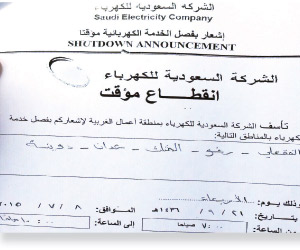 الشركه السعودية للكهرباء
Saudi Electricity Company
إشعار بفصل الخدمة الكهربائية مؤقتا
SHUTDOWN ANNOUNCEMENT
الشركة السعودية للكهرباء
انقطاع مؤقت
تأسف الشركة السعودية للكهرباء بمنطقة أعمال الغربية لإشعاركم بفصل خدمة
كهرباء بالمناطق التالية:
وذلك يوم: الأربعاء
بتاريخ: ١٤٣٦/٩/٢١ الموافق: ٢٠١٥/٧/٨
من الساعة: ٧:٠٠ صباحا إلى الساعة: